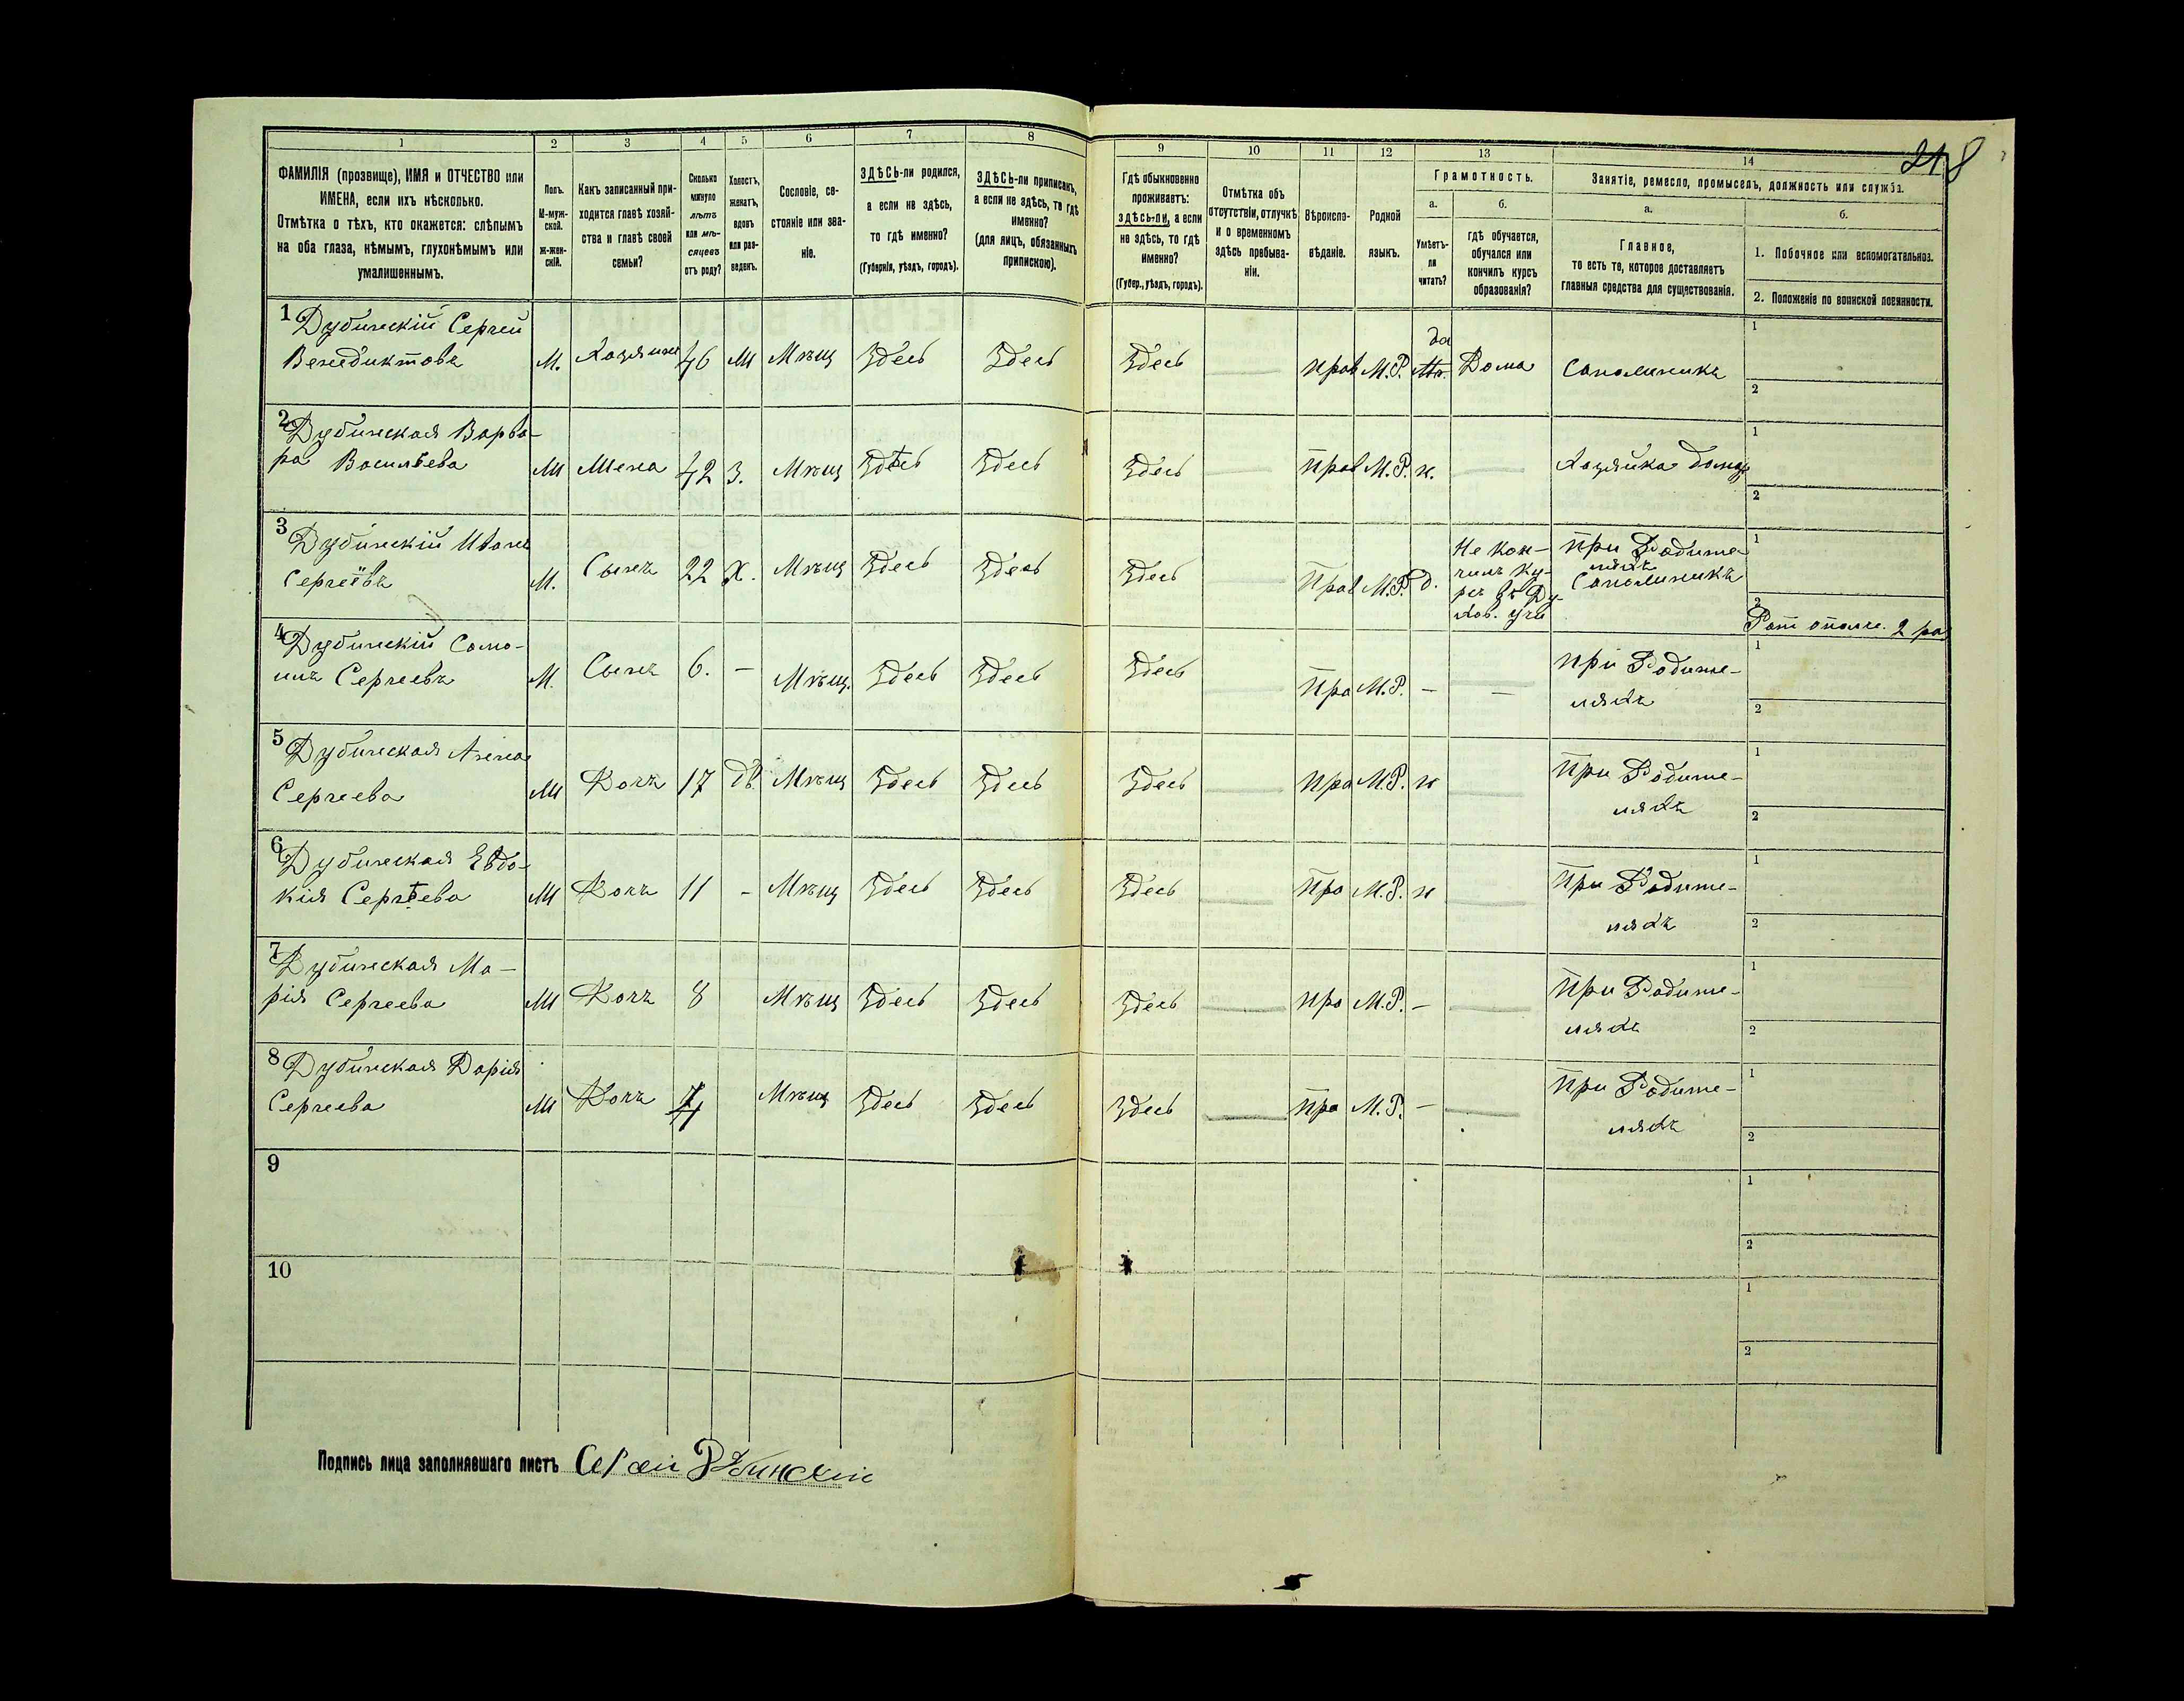 218
1 2 3 4 5 6 7 8 9 10 11 12 13 14
ФАМИЛІЯ (прозвище), ИМЯ и ОТЧЕСТВО или
ИМЕНА, если ихъ нѣсколько.
Отмѣтка о тѣхъ, кто окажется: слѣпымъ
на оба глаза, нѣмымъ, глухонѣмымъ или
умалишеннымъ.
Полъ.
М-муж-
ской.
Ж-жен-
скій.
Какъ записанный при-
ходится главѣ хозяй-
ства и главѣ своей
семьи?
Сколько
минуло
лѣтъ
или мѣ-
сяцевъ
отъ роду?
Холостъ,
женатъ,
вдовъ
или раз-
веденъ.
Сословіе, со-
стояніе или зва-
ніе.
ЗДѢСЬ-ли родился,
а если не здѣсь,
то гдѣ именно?
(Губернія, уѣздъ, городъ).
ЗДѢСЬ-ли приписанъ,
а если не здѣсь, то гдѣ
именно?
(для лицъ, обязанныхъ
припискою).
Гдѣ обыкновенно
проживаетъ:
здѣсь-ли, а если
не здѣсь, то гдѣ
именно?
(Губер., уѣздъ, городъ).
Отмѣтка объ
отсутствіи, отлучкѣ
и о временномъ
здѣсь пребыва-
ніи.
Вѣроиспо-
вѣданіе.
Родной
языкъ.
Грамотность.
а.
Умѣетъ-
ли
читать?
б.
гдѣ обучается,
обучался или
кончилъ курсъ
образованія?
Занятіе, ремесло, промыселъ, должность или служба.
а.
Главное,
то есть то, которое доставляетъ
главныя средства для существованія.
б.
1. Побочное или вспомогательное.
2. Положеніе по воинской повинности.
1 Дубинскій Сергей
да 1
Венедиктовъ М. Хозяинъ 46 Ж Мѣщ Здесь Здесь Здесь прав М.Р. Дома Сапожникъ
2
2 Дубинская Варва-
1
ра Васильева Ж Жена 42 З. Мѣщ Здѣсь Здесь Здесь прав М.Р. н. Хозяйка дома
2
3 Дубинскій Иванъ
Не кон- при Родите- 1
Сергеевъ М. Сынъ 22 Х. Мѣщ Здесь Здесь Здесь Прав М.Р. д. чилъ ку- ляхъ
рсъ въ Ду- Сапожникъ
хов. учи 2 Рат ополче. 2 раз
4 Дубинскій Само-
при Родите- 1
илъ Сергеевъ М. Сынъ 6. - Мѣщ. Здесь Здесь Здесь Пра М.Р. - - ляхъ
2
5 Дубинская Агена
при Родите- 1
Сергеева Ж Дочь 17 дѣ. Мѣщ Здесь Здесь Здесь пра М.Р. н ляхъ
2
6 Дубинская Евдо-
при Родите- 1
кія Сергѣева Ж Дочь 11 - Мѣщ Здесь Здесь Здесь пра М.Р. н ляхъ
2
7 Дубинская Ма-
при Родите- 1
рія Сергеева Ж Дочь 8 Мѣщ Здесь Здесь Здесь про М.Р. - ляхъ
2
8 Дубинская Дарія
При Родите- 1
Сергеева Ж Дочь 4 Мѣщ Здесь Здесь Здесь пра М.Р. - ляхъ
2
9
1
2
10
1
2
Подпись лица заполнявшаго листъ Сергѣи Дубинскіи